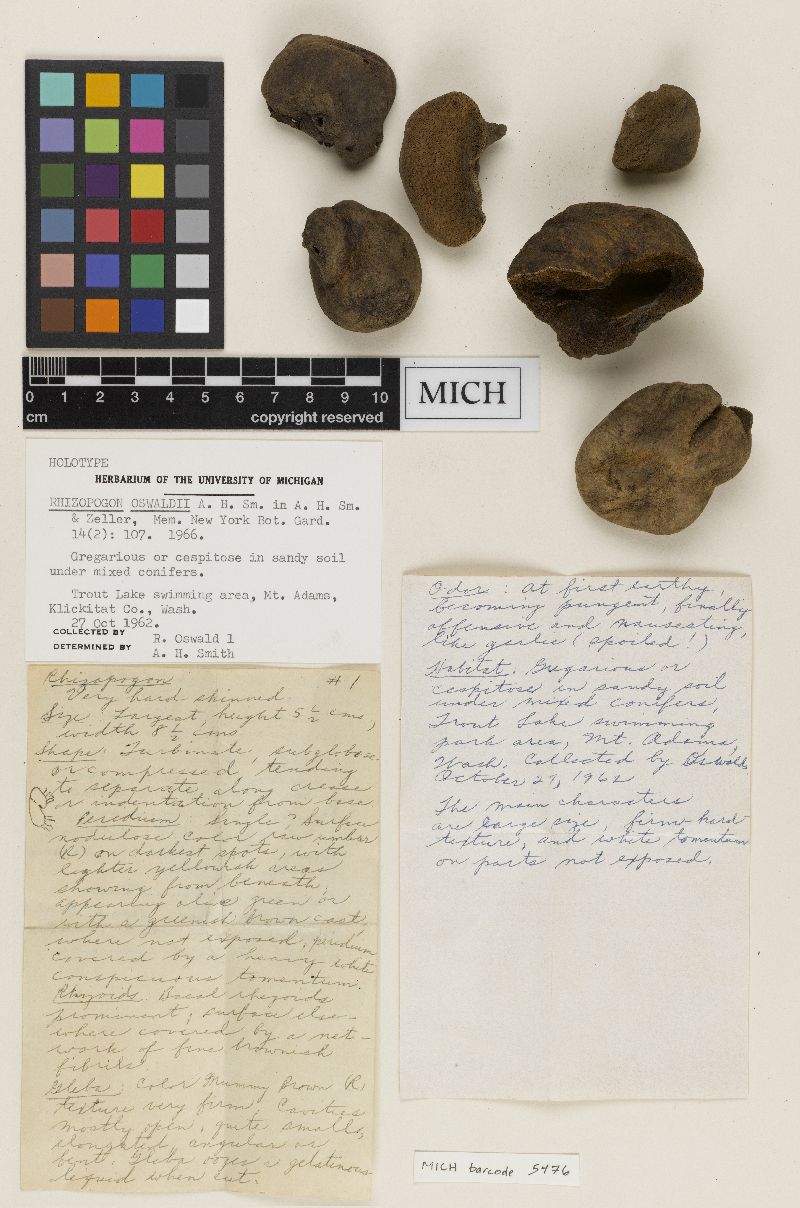 0 1 2 3 4 5 6 7 8 9 10
cm copyright reserved
MICH
HOLOTYPE
HERBARIUM OF THE UNIVERSITY OF MICHIGAN
RHIZOPOGON OSWALDII A. H. Sm. in A. H. Sm.
& Zeller, Mem. New York Bot. Gard.
14(2): 107. 1966.
Gregarious or cespitose in sandy soil
under mixed conifers.
Trout Lake swimming area, Mt. Adams,
Klickitat Co., Wash.
27 Oct 1962.
COLLECTED BY R. Oswald 1
DETERMINED BY A. H. Smith
Rhizopogon # 1
Very hard-skinned
Size: Largest, height 5 1/2 cms,
width 8 1/2 cms
Shape: Turbinate, subglobose
or compressed, tending
to separate along crease
or indentation from base.
Peridium Single? Surface
nodulose color raw umber
(R) on darkest spots, with
lighter yellowish areas
showing from beneath,
appearing olive green or
with a greenish brown cast,
where not exposed, peridium
covered by a heavy white
conspicuous tomentum.
Rhizoids. Basal rhizoids
prominent; surface else-
where covered by a net-
work of fine brownish
fibrils.
Gleba: Color Mummy Brown (R)
Texture very firm. Cavities
mostly open, quite small,
elongated, angular or
bent. Gleba oozes a gelatinous
liquid when cut.
Odor: at first earthy,
becoming pungent, finally
offensive and nauseating,
like garlic (spoiled!)
Habitat. Gregarious or
cespitose in sandy soil
under mixed conifers,
Trout Lake swimming
park area, Mt. Adams,
Wash. Collected by Oswalds
October 27, 1962
The main characters
are large size, firm-hard
texture, and white tomentum
on parts not exposed.
MICH barcode 5476